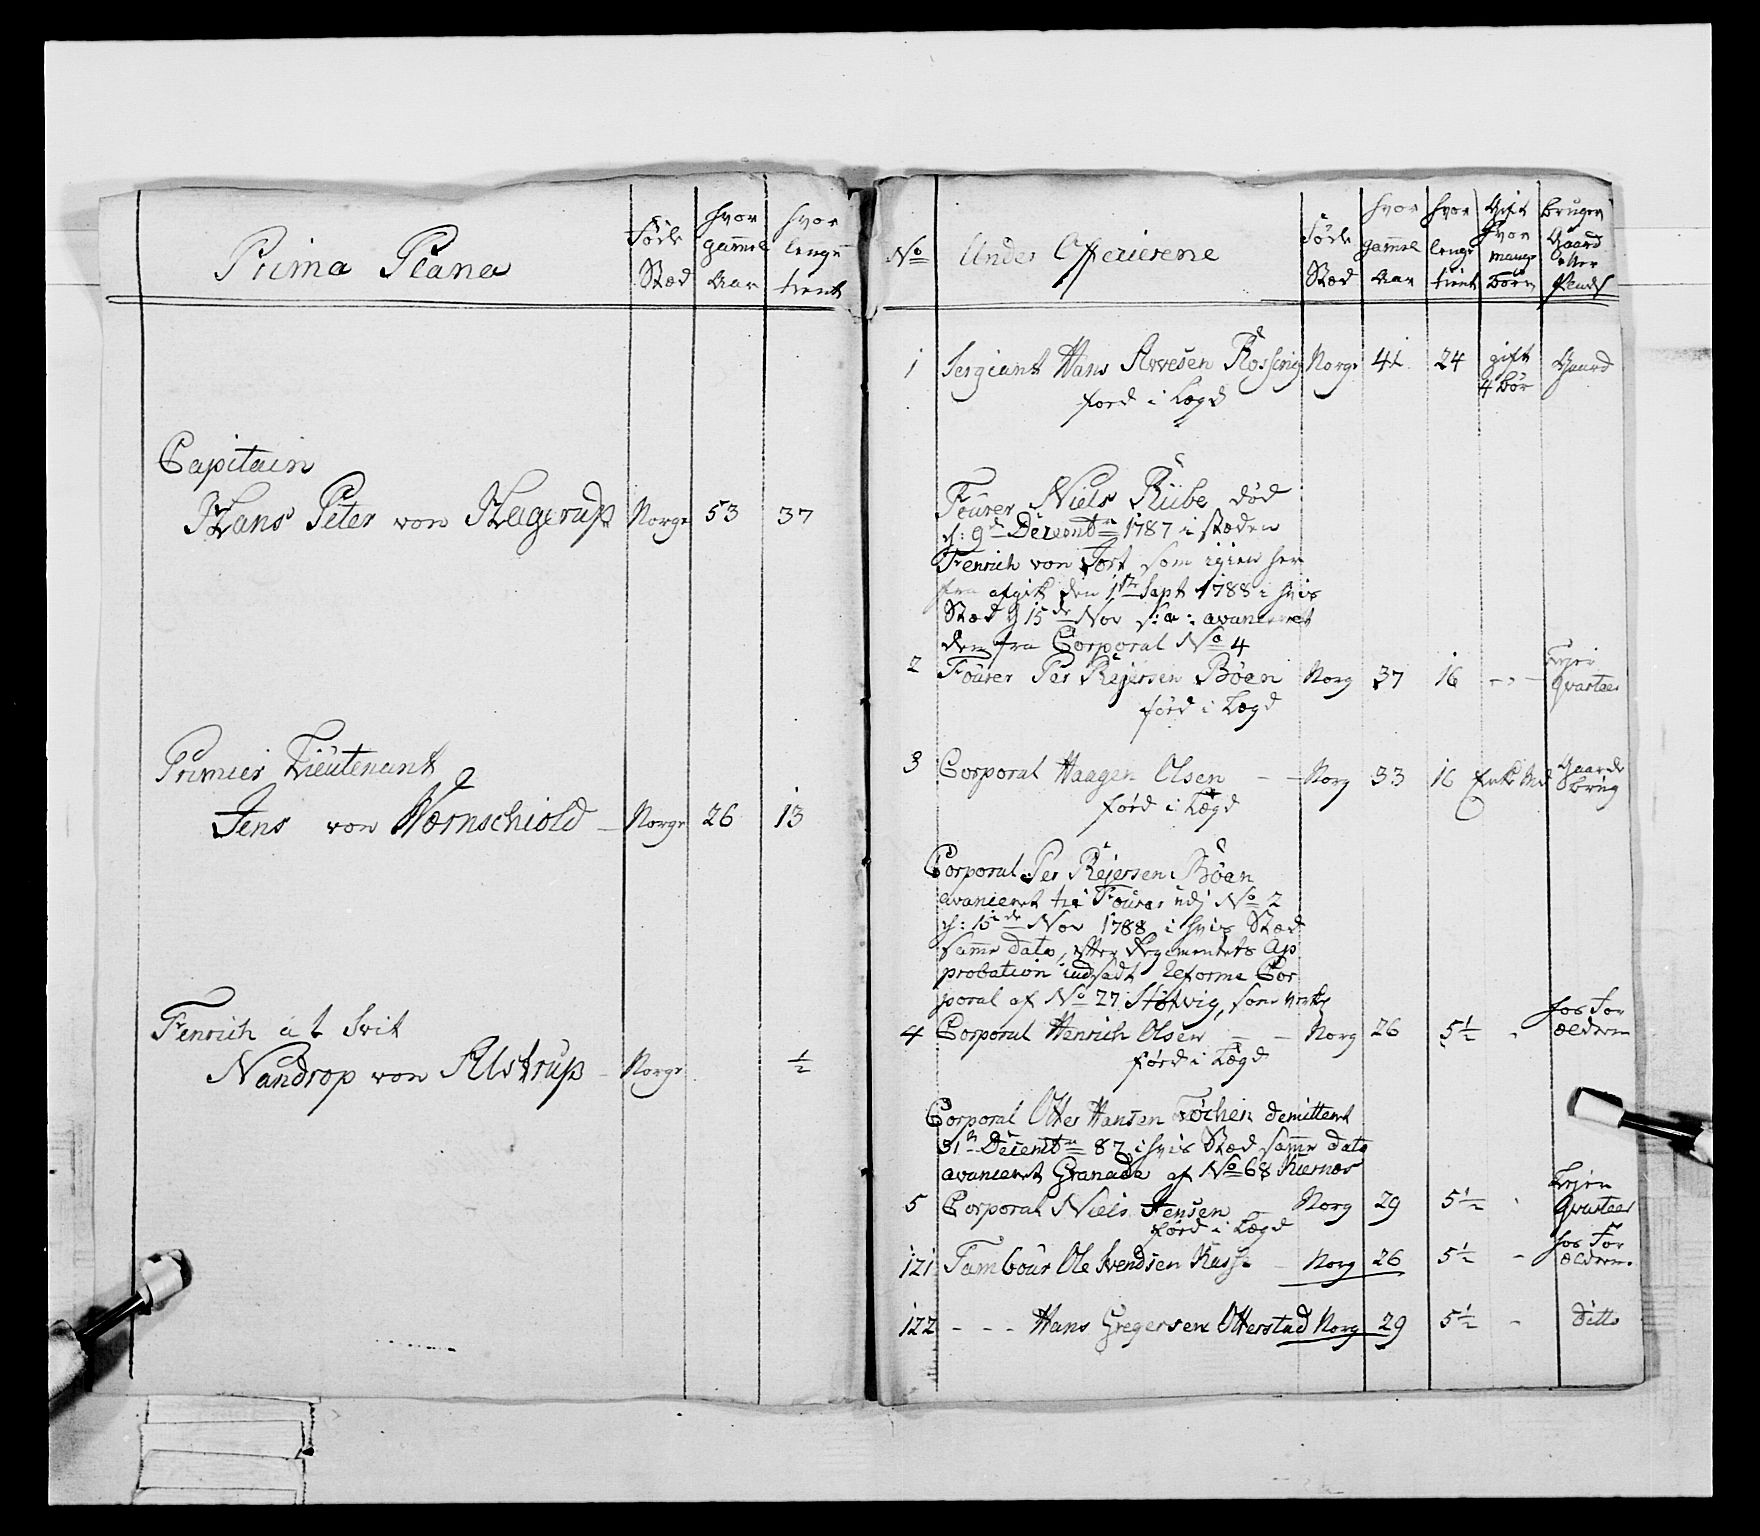 Prima Plana
Føde Stæd
hvor gammel Aar
hvor lenge tient
Capitain
Hans Peter von Hagerup Norge 53 37
Premier Lieutenant
Jens von Wærnschiold Norge 26 13
Fenrich a l Svit
Nandrop von Alstrup Norge ½
No Under Officierene
Føde Stæd
hvor gammel Aar
hvor lenge tient
Gift hvor mange børn
bruger Gaard eller
1 Sergiant Hans Norge 41 24 gift 4 bør Gaard
førd i Lægd
Fourer Niels Riibe død
d: 9de Decembr 1787 i stæden
Fenrich von som igien her
fra afgik den 1ste Sept 1788 i hvis
Stæd d 15de Nov s: a: avanceret
den fra Corporal No 4
2 Fourer Per Rejersen Böen Norg 37 16 - - - Lejer Qvarteer
førd i Lægd
3 Corporal Haagen Olsen - - Norg 33 16 Gaards brug
førd i Lægd
Corporal Per Rejersen Böen
avanceret til Fourer udj No 2
d: 15de Nov 1788 i hvis Stæd
samme dato, efter Regimentets Ap
probation indsadt Reforme Cor
poral af No 27 Støtvig, som
4 Corporal Henrich Olsen - - Norg 26 5½ - hos For ældern
førd i Lægd
Corporal Otter Hansen demitteret
31te Decembr 87 i hvis Stæd samme dato
avanceret Granade af No 68 Kiernes
5 Corporal Niels Jensen - Norg 29 5½ - Lejer Qvarteer
førd i Lægd
121 Tambour Ole Svendsen - Norg 26 5½ - hos For ældern.
122 - - - Hans Gregersen Otterstad Norg 29 5½ - ditto